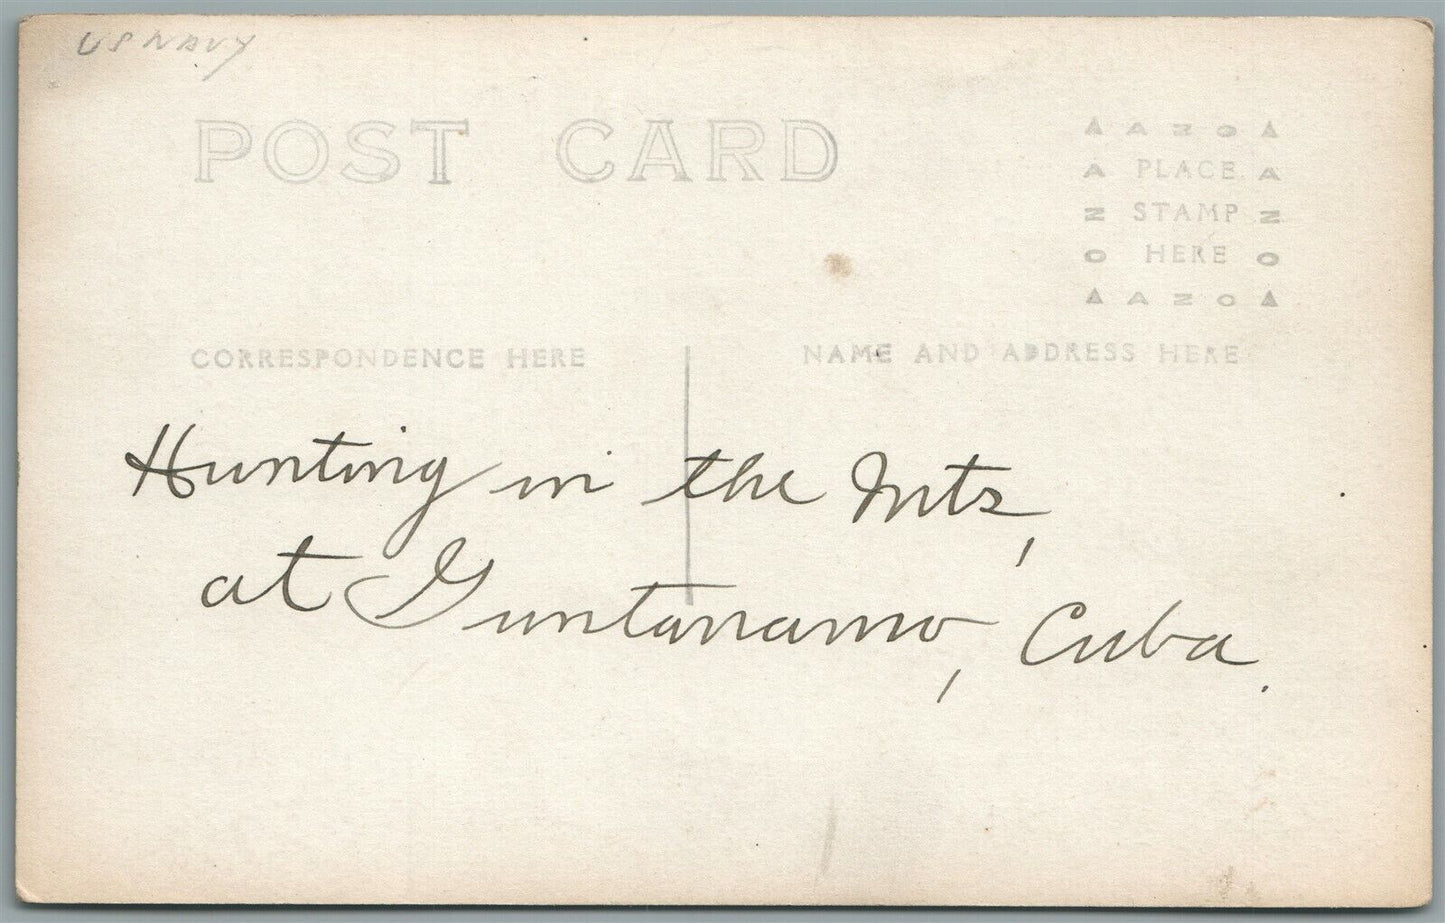 US NAVY
POST CARD
▲ A Z O ▲
A PLACE A
Z STAMP Z
O HERE O
▲ A Z O ▲
CORRESPONDENCE HERE
NAME AND ADDRESS HERE
Hunting in the Mts,
at Guntanamo, Cuba.